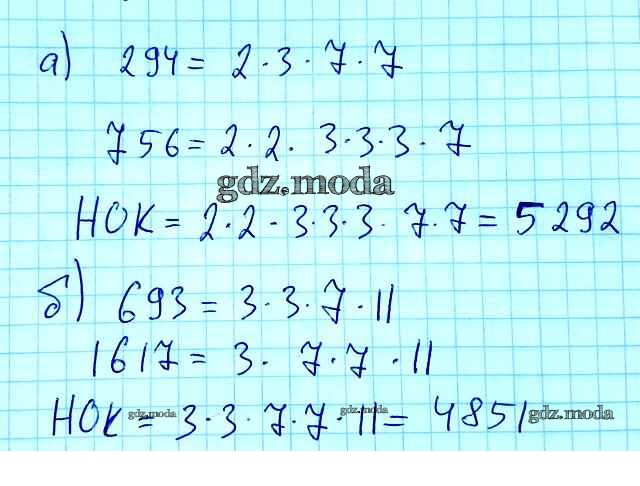 а) 294 = 2 · 3 · 7 · 7
756 = 2 · 2 · 3 · 3 · 3 · 7
gdz.moda
НОК = 2 · 2 · 3 · 3 · 3 · 7 · 7 = 5292
б) 693 = 3 · 3 · 7 · 11
1617 = 3 · 7 · 7 · 11
НОК = 3 · 3 · 7 · 7 · 11 = 4851
gdz.moda gdz.moda gdz.moda